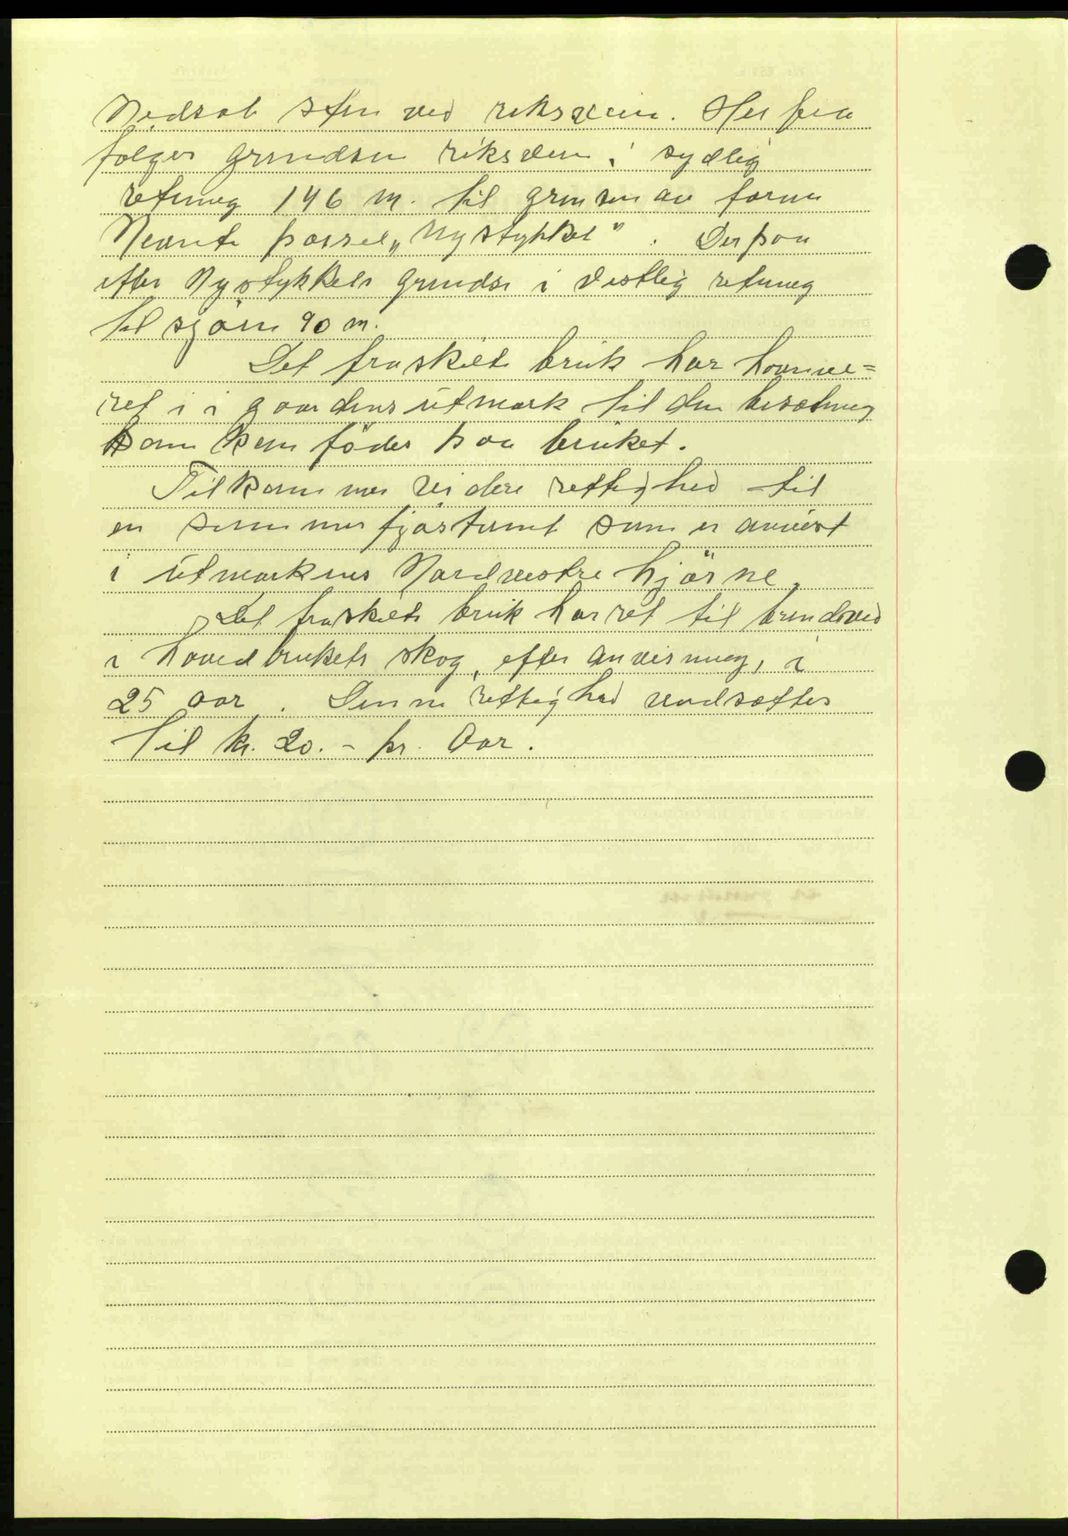 Nedsat sten ved riksveien. Her fra
følger grændsen riksveien i sydlig
retning 146 m. til grensen av forna
Nevnte parsel „Nystykket". Derpaa
efter Nystykkets grændse i vestlig retning
til sjøen 90 m.
Det fraskilte bruk har havne=
ret i i gaardens utmark til den besætning
som kan födes paa bruket.
Tilkommer videre rettighed til
en sommerfjöstomt som er anvist
i utmarkens Nordvestre hjörne.
Det fraskilte bruk har ret til brendeved
i hovedbrukets skog, efter anvisning, i
25 aar. Denne rettighed verdsættes
til kr. 20.- pr. Aar.